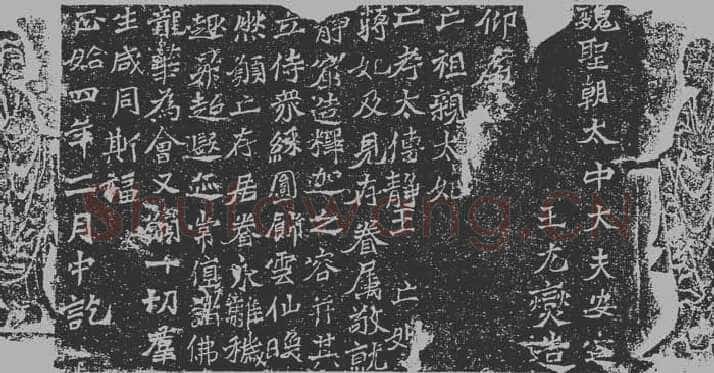 魏聖朝太中大夫安定
王元燮造
仰為
亡祖親太妃
亡考太傅靜王 亡妣
蔣妃及見存眷屬敬就
靜窟造釋迦之容并其
立侍眾綵圓飾雲仙暎
然願亡存居眷永離穢
趣昇超遐迹常值諸佛
龍華為會又願一切羣
生咸同斯福
正始四年二月中訖
Shufawang.CN